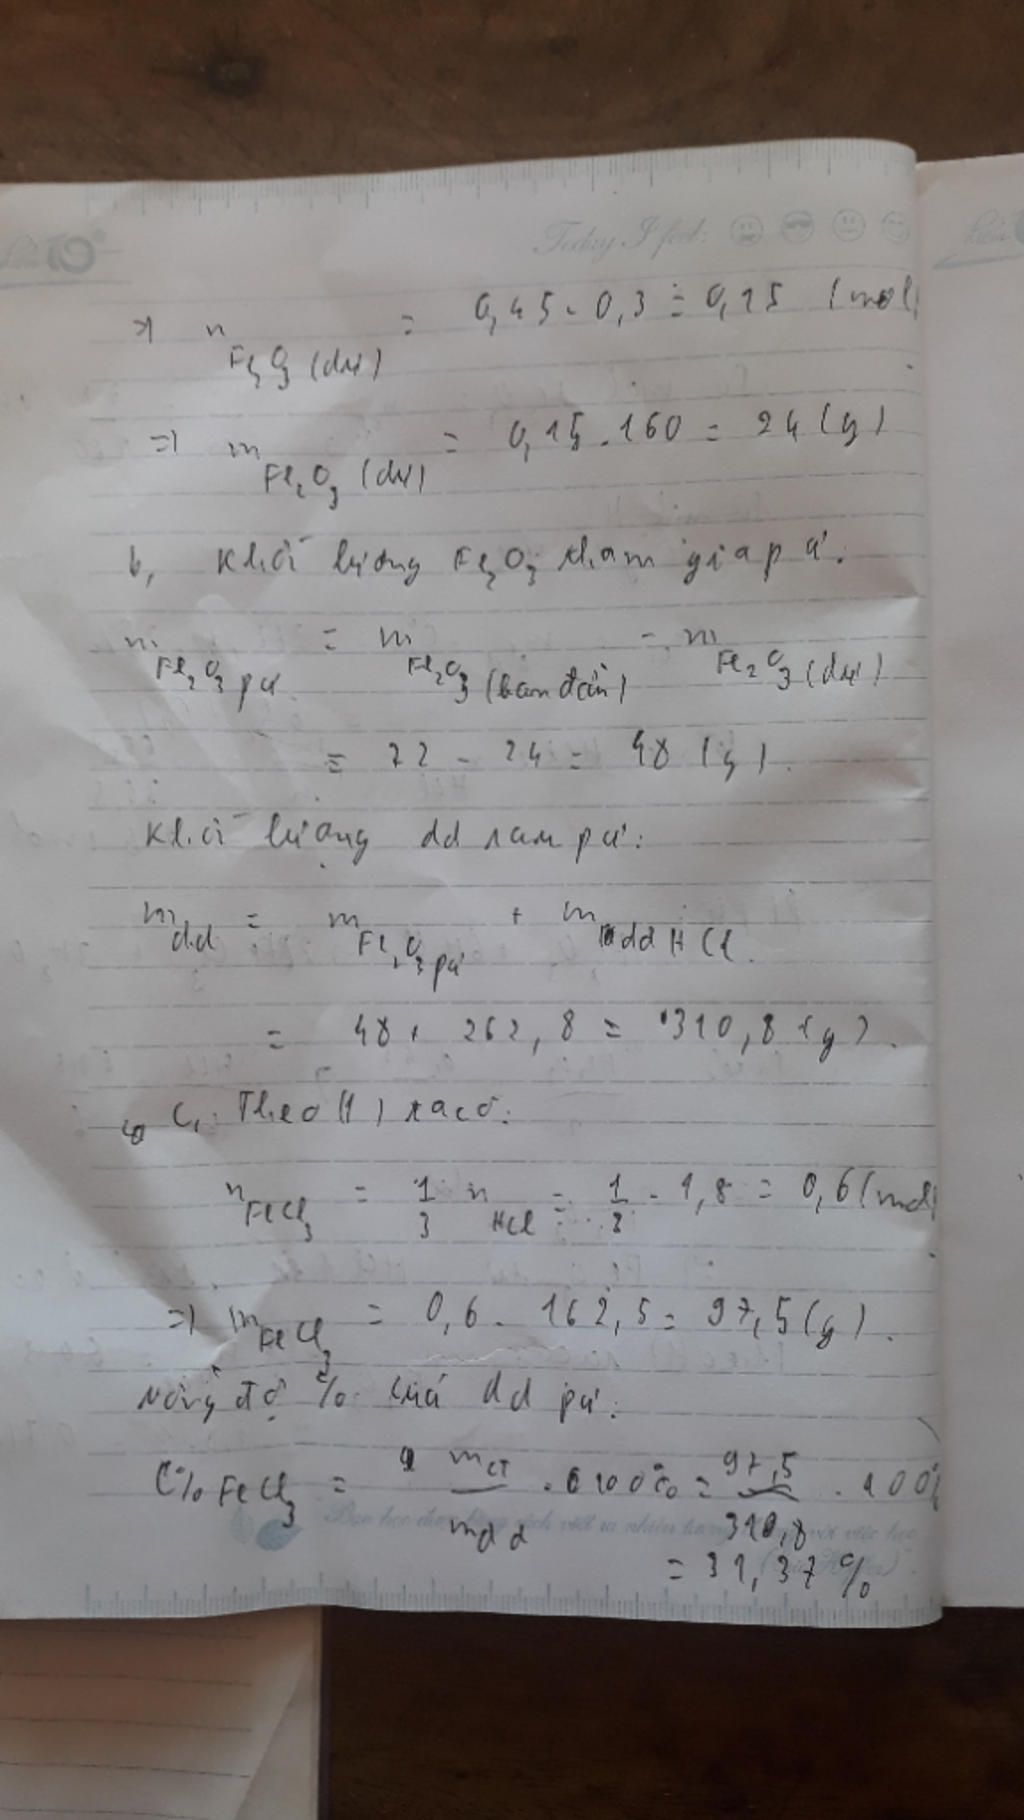 Today I feel:
=> n Fe2O3 (dư) = 0,45 - 0,3 = 0,15 (mol)
=> m Fe2O3 (dư) = 0,15 . 160 = 24 (g)
b, Khối lượng Fe2O3 tham gia pứ:
m Fe2O3 pứ = m Fe2O3 (ban đầu) - m Fe2O3 (dư)
= 72 - 24 = 48 (g).
Khối lượng dd sau pứ:
m dd = m Fe2O3 pứ + m dd HCl.
= 48 + 262,8 = 310,8 (g).
c, Theo (1) ta có:
n FeCl3 = 1/3 n HCl = 1/3 . 1,8 = 0,6 (mol)
=> m FeCl3 = 0,6 . 162,5 = 97,5 (g).
Nồng độ % của dd pứ:
C% FeCl3 = mct/mdd . 100% = 97,5/310,8 . 100%
= 31,37 %